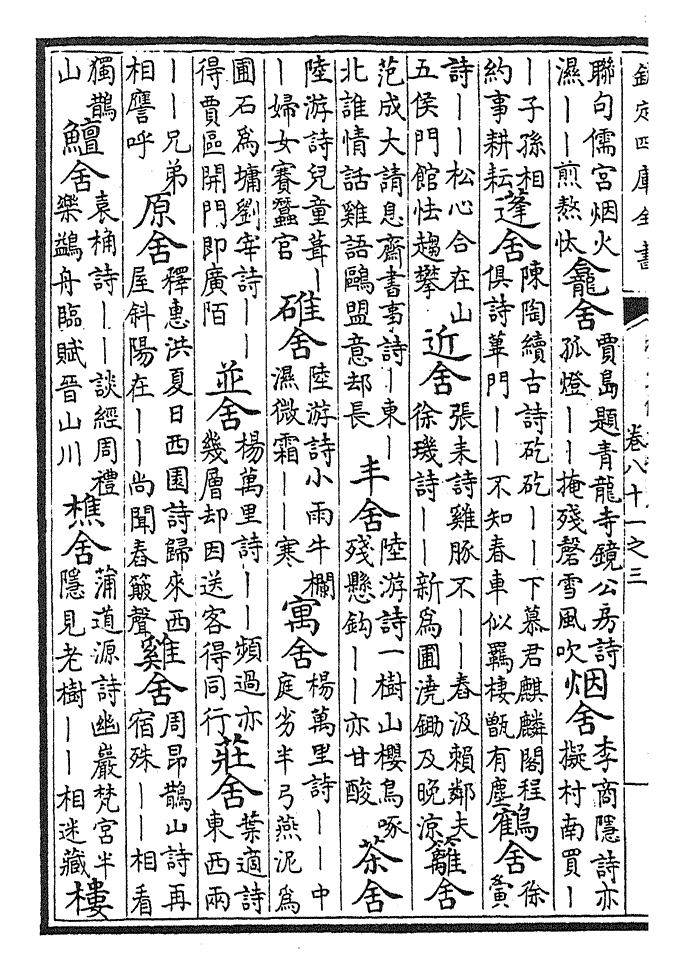 欽定四庫全書
卷八十一之三
聯句儒宮烟火濕丨丨煎熬忲龕舍賈島題青龍寺鏡公房詩孤燈丨丨掩殘磬雪風吹烟舍李商隱詩亦擬村南買丨
丨子孫相約事耕耘蓬舍陳陶續古詩矻矻丨丨下慕君麒麟閣程俱詩蓽門丨丨不知春車似羈棲甑有塵鶴舍徐夤
詩丨丨松心合在山五侯門館怯趨攀近舍張耒詩雞豚不丨丨舂汲賴鄰夫徐璣詩丨丨新為圃澆鋤及晚涼籬舍
范成大請息齋書事詩丨東丨北誰情話雞語鷗盟意却長丰舍陸游詩一樹山櫻鳥啄殘懸鈎丨丨亦甘酸茶舍
陸游詩兒童葺丨丨婦女賽蠶官碓舍陸游詩小雨牛欄濕微霜丨丨寒寓舍楊萬里詩丨丨中庭劣半弓燕泥為
圃石為墉劉宰詩丨丨得賈區開門即廣陌並舍楊萬里詩丨丨頻過亦幾層却因送客得同行莊舍葉適詩東西兩
丨丨兄弟相譍呼原舍釋惠洪夏日西園詩歸來西屋斜陽在丨丨尚聞舂簸聲雞舍周昂鵲山詩再宿殊丨丨相看
獨鵲山鱣舍袁桷詩丨丨談經周禮樂鷁舟臨賦晉山川樵舍蒲道源詩幽巖梵宮半隱見老樹丨丨相迷藏樓